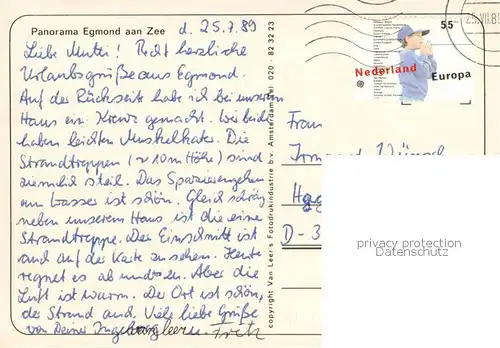 Panorama Egmond aan Zee
d. 25.7.89
Liebe Mutti! Recht herzliche
Urlaubsgrüße aus Egmond.
Auf der Rückseite habe ich bei unserem
Haus ein Kreuz gemacht. Wir beide
haben leichten Muskelkater. Die
Strandtreppen (~10m Höhe) sind
ziemlich steil. Das Spazierengehen
am Wasser ist schön. Gleich schräg
neben unserem Haus ist die eine
Strandtreppe. Der Einschnitt ist
auf der Karte zu sehen. Heute
regnet es ab und zu. Aber die
Luft ist warm. Der Ort ist schön,
der Strand auch. Viele liebe Grüße
von Deiner Ingeborg u. Fritz
copyright Van Leer's Fotodrukindustrie b.v. Amsterdam tel 020 - 82 32 23
55
Nederland
Europa
25.VII.89
Frau
D-3
privacy protection
Datenschutz